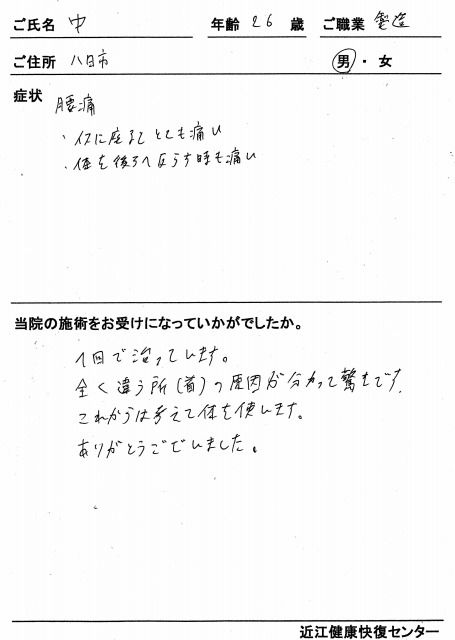 ご氏名 中 年齢 26 歳 ご職業 製造
ご住所 八日市 男・女
症状 腰痛
・イスに座ると とても痛い
・体を後ろへ反らす時も痛い
当院の施術をお受けになっていかがでしたか。
1回で治っています。
全く違う所(首)の原因が分かって驚きです。
これからは考えて体を使います。
ありがとうございました。
近江健康快復センター